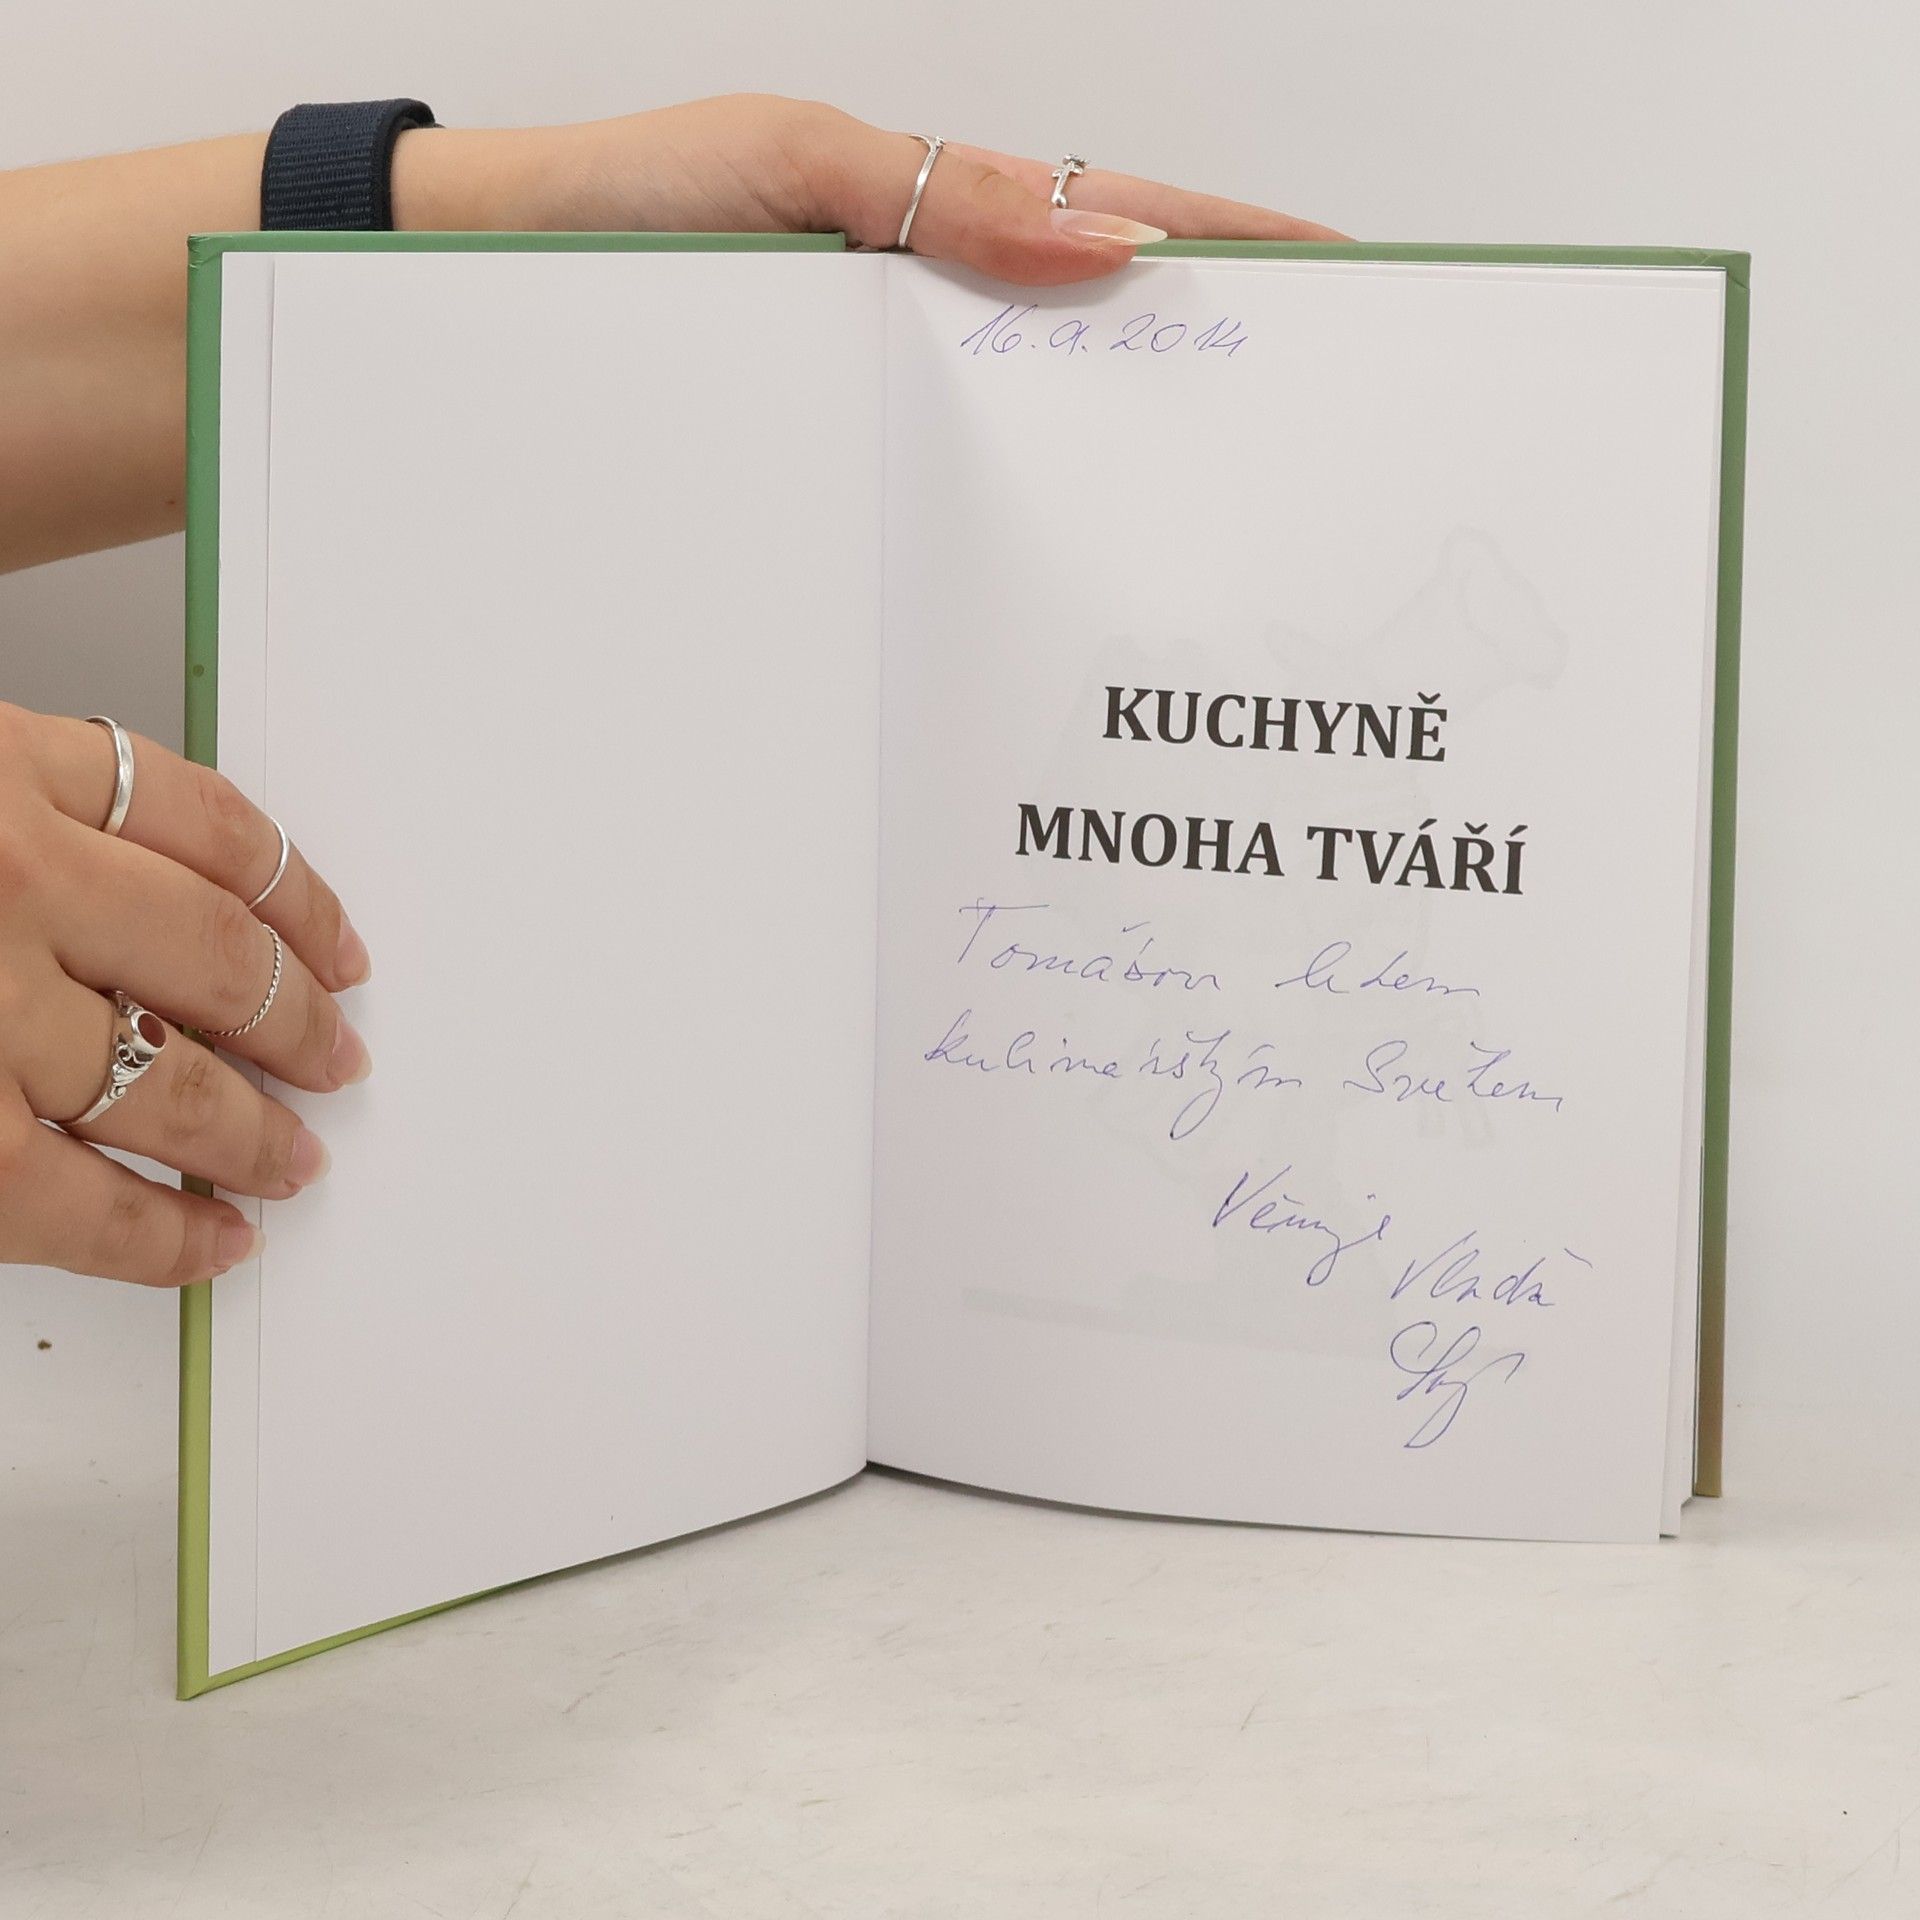 16. 9. 2014
KUCHYNĚ
MNOHA TVÁŘÍ
Tomášovi letem
kulinářským Světem
Věnuje
Vláďa